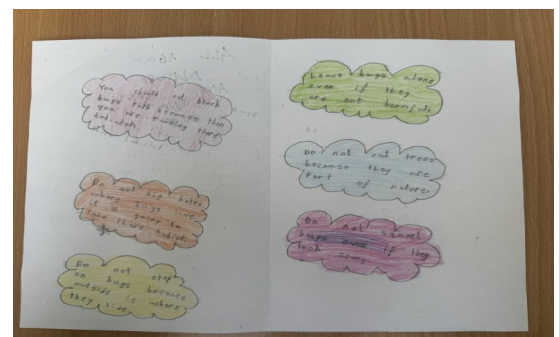 You should not block
bugs path because then
you are ruining there
habitats
Do not dig holes
where bugs live
it is going to
ruin there habitat
Do not step
on bugs because
outside is where
they live
Leave bugs alone
even if they
are not harmful
Do not cut trees
because they are
part of nature.
Do not squash
bugs even if they
look scary